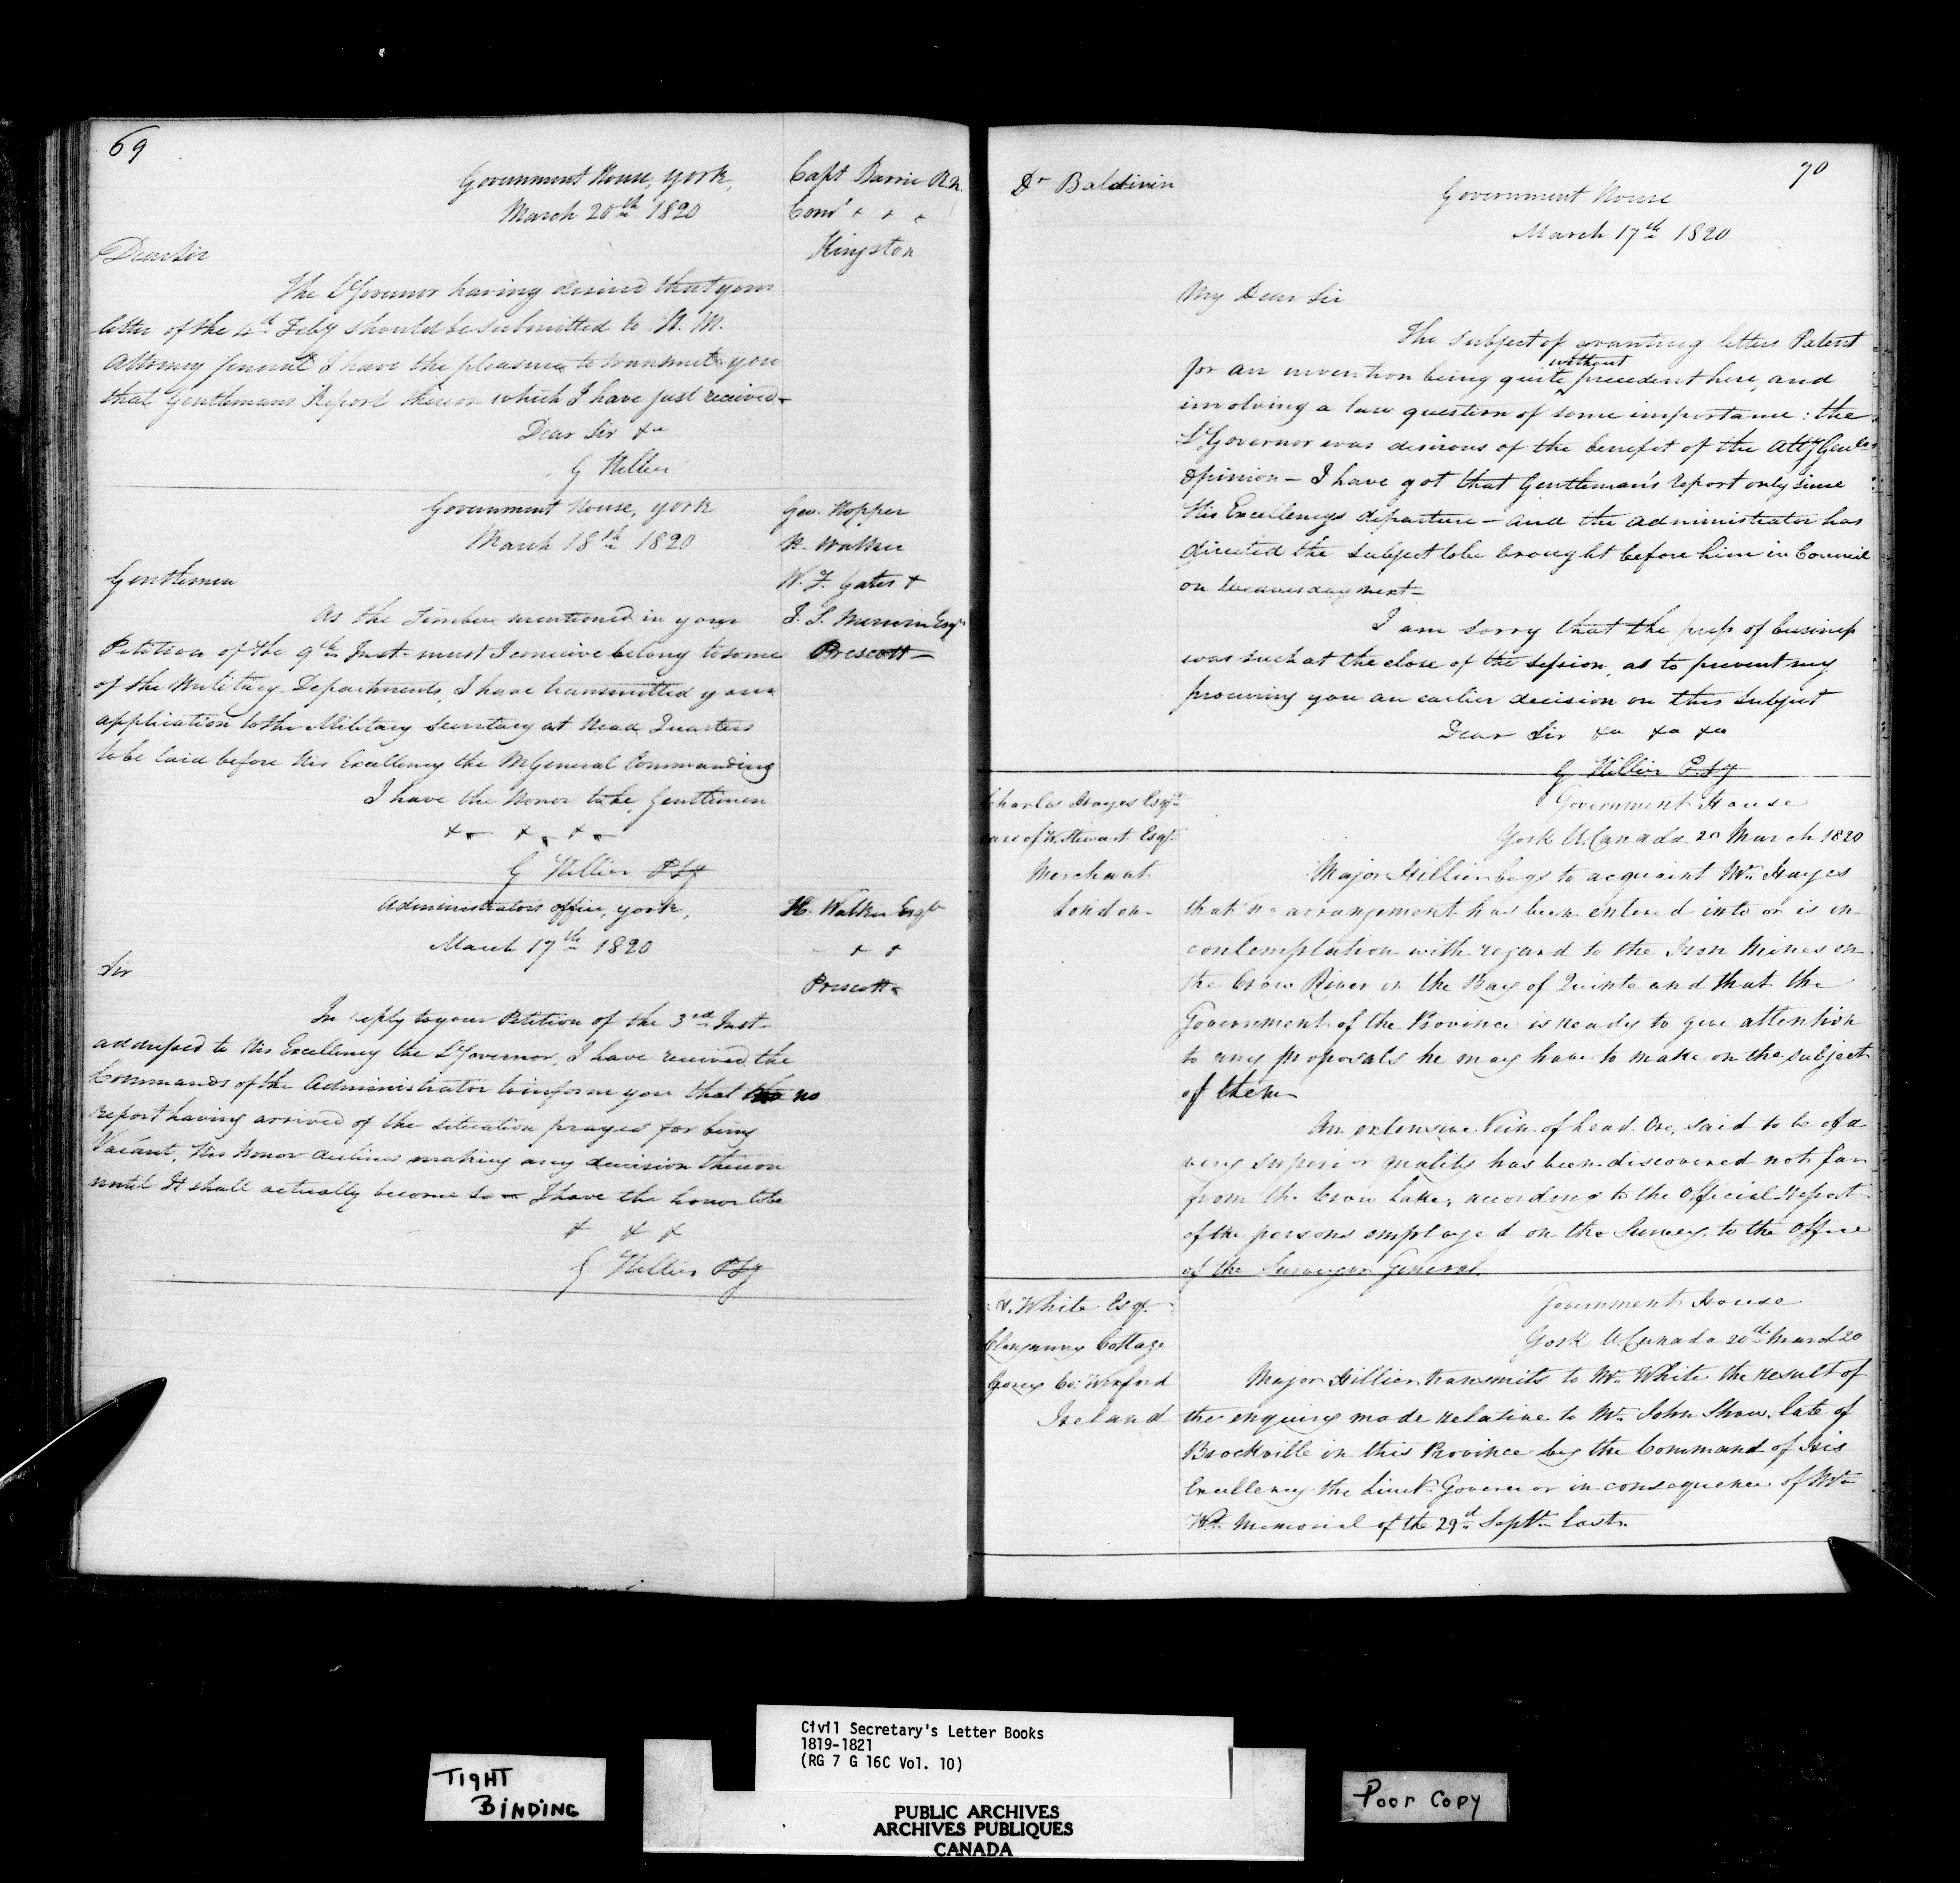 69
Government House, York,
March 20th 1820
Capt Barrie R.N.
Comr + + +
Kingston
Dear Sir
The Lt Governor having desired that your
letter of the 4th Feby should be submitted to H. M.
Attorney General I have the pleasure to transmit you
that Gentlemans Report thereon which I have just received -
Dear Sir &c
G Hillier
Government House, York
March 18th 1820
Geo. Hopper
H. Walker
W. F. Gates +
J. S. Merwin Esqrs
Prescott -
Gentlemen
As the Timber mentioned in your
Petition of the 9th Inst. must I conceive belong to some
of the Military Departments, I have transmitted your
application to the Military Secretary at Head Quarters
to be laid before His Excellency the M General Commanding
I have the Honor to be, Gentlemen
&c &c &c
G Hillier P.Sy
Administrators office, York,
March 17th 1820
H. Walker Esqr
+ +
Prescott
Sir
In reply to your Petition of the 3rd Inst
addressed to His Excellency the Lt Governor, I have received the
Commands of the Administrator to inform you that no
report having arrived of the situation prayed for being
Vacant, His Honor declines making any decision thereon
until It shall actually become so - I have the honor to be
& & &
G Hillier P.Sy
70
Dr Baldwin
Government House
March 17th 1820
My Dear Sir
The subject of granting letters Patent
for an invention being quite without precedent here, and
involving a law question of some importance: the
Lt Governor was desirous of the benefit of the Atty Genls
Opinion - I have got that Gentleman's report only since
His Excellencys departure - and the Administrator has
directed the subject to be brought before him in Council
on Wednesday next -
I am sorry that the press of business
was such at the close of the session, as to prevent my
procuring you an earlier decision on this subject
Dear Sir &c &c &c
G Hillier P.Sy
Charles Hayes Esqr
care of W. Stewart Esqr
Merchant
London -
Government House
York U. Canada 20 March 1820
Major Hillier begs to acquaint Mr. Hayes
that no arrangement has been entered into or is in
contemplation with regard to the Iron Mines on
the Crow River in the Bay of Quinte and that the
Government of the Province is ready to give attention
to any proposals he may have to make on the subject
of them
An extensive Vein of Lead Ore, said to be of a
very superior quality has been discovered not far
from the Crow Lake, according to the Official report
of the persons employed on the Survey, to the Office
of the Surveyor General.
White Esqr.
Cottage
Gorey Co: Wexford
Ireland
Government House
York U. Canada 20th March 20
Major Hillier transmits to Mr. White the result of
the enquiry made relative to Mr. John Shaw, late of
Brockville in this Province by the Command of His
Excellency the Lieut. Governor in consequence of Mr
Ws. Memorial of the 29th Septr. last.
TIGHT
BINDING
Civil Secretary's Letter Books
1819-1821
(RG 7 G 16C Vol. 10)
PUBLIC ARCHIVES
ARCHIVES PUBLIQUES
CANADA
Poor Copy